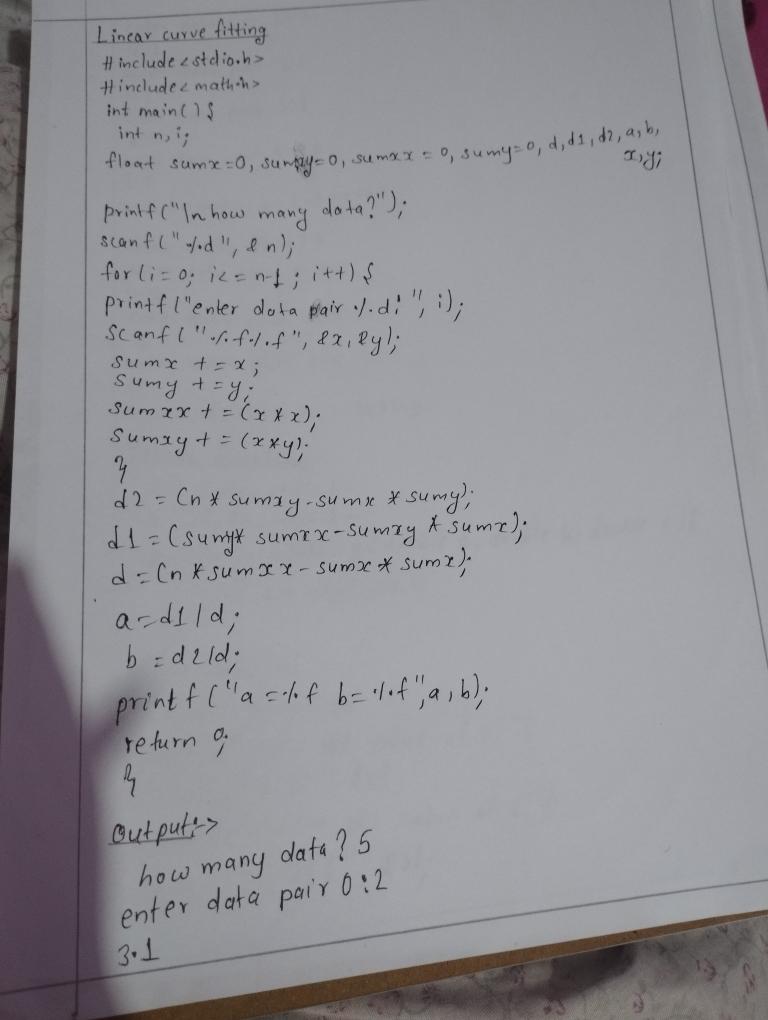 Linear curve fitting
#include<stdio.h>
#include<math.h>
int main(){
int n,i;
float sumx=0, sumxy=0, sumxx=0, sumy=0, d,d1,d2,a,b,
x,y;
printf("\n how many data?");
scanf("%d", &n);
for(i=0; i<=n-1; i++){
printf("enter data pair %d:", i);
scanf("%f%f", &x,&y);
sumx += x;
sumy += y;
sumxx += (x*x);
sumxy += (x*y);
}
d2 = (n*sumxy-sumx*sumy);
d1 = (sumy*sumxx-sumxy*sumx);
d = (n*sumxx-sumx*sumx);
a=d1/d;
b=d2/d;
printf("a=%f b=%f",a,b);
return 0;
}
Output:->
how many data? 5
enter data pair 0:2
3.1